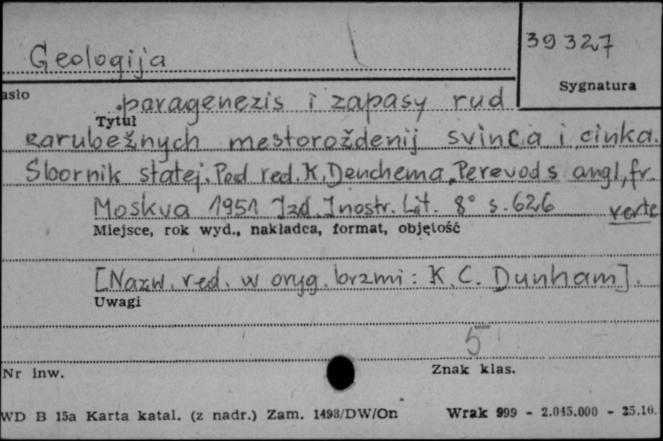 39327
Geologija
Sygnatura
asło
, paragenezis i zapasy rud
Tytuł
zarubežnych mestoroždenij svinca i cinka.
Sbornik statej. Pod red. K. Denchema, Perevod s angl, fr.
Moskva 1951 Izd. Inostr. Lit. 8° s. 626 verte
Miejsce, rok wyd., nakładca, format, objętość
[Nazw. red. w oryg. brzmi: K. C. Dunham].
Uwagi
5
Nr inw.
Znak klas.
WD B 15a Karta katal. (z nadr.) Zam. 1498/DW/On Wrak 999 - 2.045.000 - 25.10.